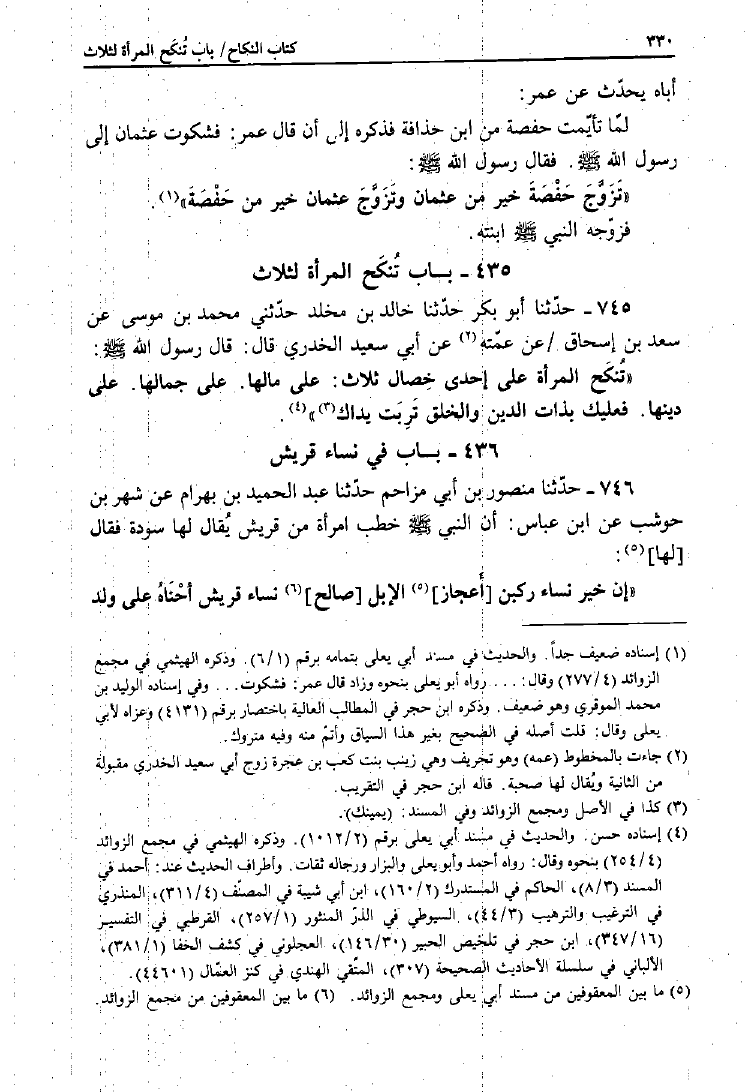 ٣٣٠
كتاب النكاح / باب تُنكَح المرأة لثلاث
أباه يحدّث عن عمر:
لمّا تأيّمت حفصة من ابن حذافة فذكره إلى أن قال عمر: فشكوت عثمان إلى
رسول الله ﷺ. فقال رسول الله ﷺ:
«تَزَوَّجَ حَفْصَةَ خير من عثمان وتَزَوَّجَ عثمان خير من حَفْصَةَ»(١).
فزوّجه النبي ﷺ ابنته.
٤٣٥ - بـاب تُنكَح المرأة لثلاث
٧٤٥ - حدّثنا أبو بكر حدّثنا خالد بن مخلد حدّثني محمد بن موسى عن
سعد بن إسحاق / عن عمّته(٢) عن أبي سعيد الخدري قال: قال رسول الله ﷺ:
«تُنكَح المرأة على إحدى خِصال ثلاث: على مالها. على جمالها. على
دينها. فعليك بذات الدين والخلق تَرِبَت يداك(٣)»(٤).
٤٣٦ - بـاب في نساء قريش
٧٤٦ - حدّثنا منصور بن أبي مزاحم حدّثنا عبد الحميد بن بهرام عن شهر بن
حوشب عن ابن عباس: أن النبي ﷺ خطب امرأة من قريش يُقال لها سودة فقال
[لها](٥):
«إن خير نساء ركبن [أَعجاز](٥) الإبل [صالح](٦) نساء قريش أحْنَاهُ على ولد
(١) إسناده ضعيف جداً. والحديث في مسند أبي يعلى بتمامه برقم (٦/١). وذكره الهيثمي في مجمع
الزوائد (٢٧٧/٤) وقال: ... رواه أبو يعلى بنحوه وزاد قال عمر: فشكوت... وفي إسناده الوليد بن
محمد الموقري وهو ضعيف. وذكره ابن حجر في المطالب العالية باختصار برقم (٤١٣١) وعزاه لأبي
يعلى وقال: قلت أصله في الصحيح بغير هذا السياق وأتمّ منه وفيه متروك.
(٢) جاءت بالمخطوط (عمه) وهو تحريف وهي زينب بنت كعب بن عجرة زوج أبي سعيد الخدري مقبولة
من الثانية ويُقال لها صحبة. قاله ابن حجر في التقريب.
(٣) كذا في الأصل ومجمع الزوائد وفي المسند: (يمينك).
(٤) إسناده حسن. والحديث في مسند أبي يعلى برقم (١٠١٢/٢). وذكره الهيثمي في مجمع الزوائد
(٢٥٤/٤) بنحوه وقال: رواه أحمد وأبو يعلى والبزار ورجاله ثقات. وأطراف الحديث عند: أحمد في
المسند (٨/٣)، الحاكم في المستدرك (١٦٠/٢)، ابن أبي شيبة في المصنّف (٣١١/٤)، المنذري
في الترغيب والترهيب (٤٤/٣)، السيوطي في الدرّ المنثور (٢٥٧/١)، القرطبي في التفسير
(٣٤٧/١٦)، ابن حجر في تلخيص الحبير (١٤٦/٣٠)، العجلوني في كشف الخفا (٣٨١/١)،
الألباني في سلسلة الأحاديث الصحيحة (٣٠٧)، المتّقي الهندي في كنز العمّال (٤٤٦٠١).
(٥) ما بين المعقوفين من مسند أبي يعلى ومجمع الزوائد. (٦) ما بين المعقوفين من مجمع الزوائد.